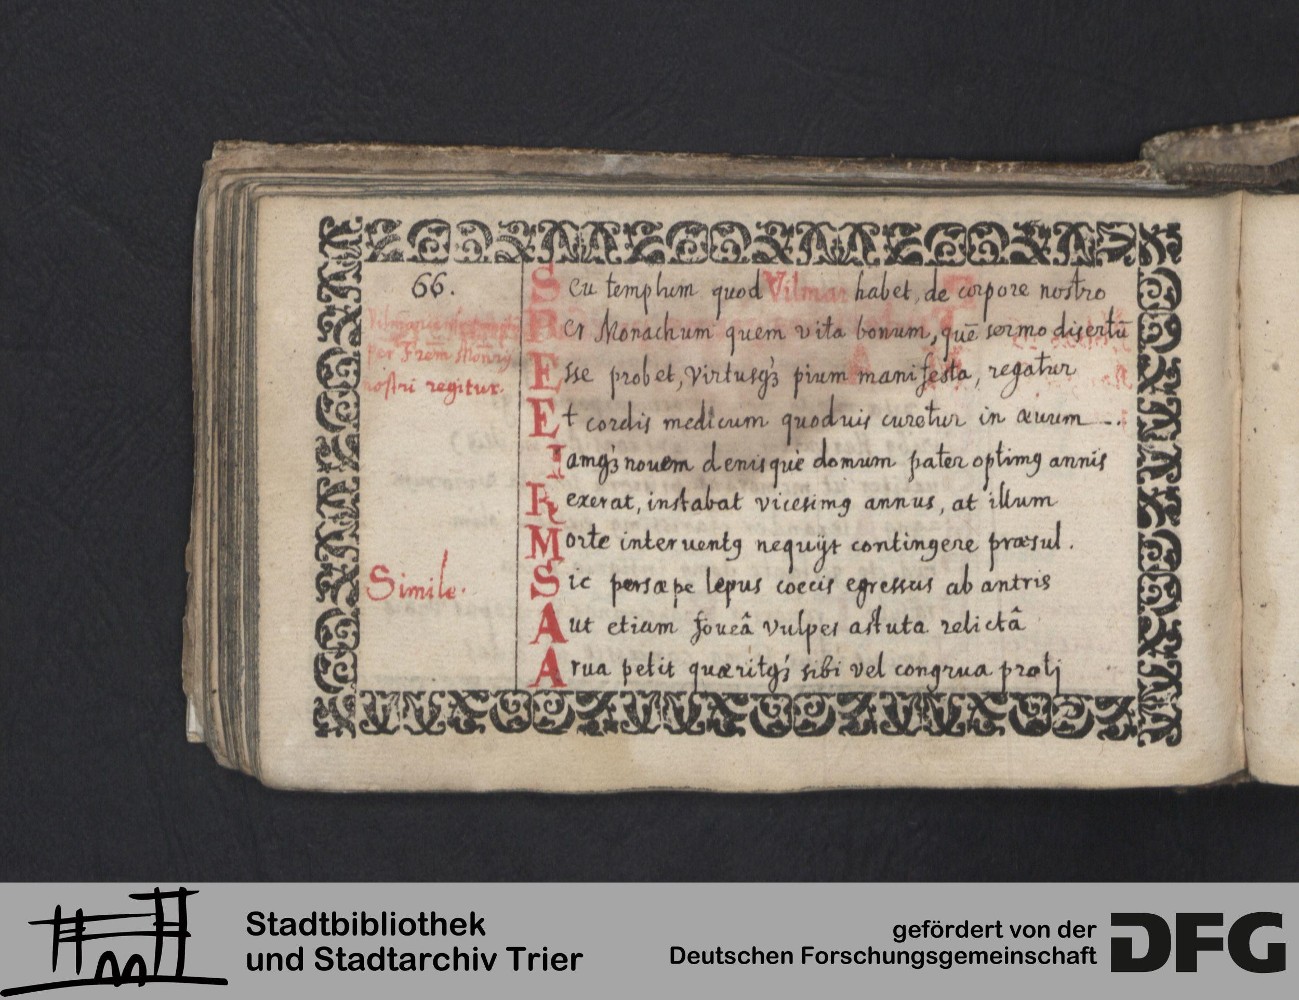 66.
per Frēm Mon̄rij
nostri regitur.
Simile.
Seu templum quod Vilmar habet, de corpore nostro
Per Monachum quem vita bonum, quē sermo disertū
Esse probet, virtusq; pium manifesta, regatur
Et cordis medicum quoduis curetur in ævum
Iamq; novem denisque domum pater optimꝰ annis
Rexerat, instabat vicesimꝰ annus, at illum
Morte interventꝰ nequijt contingere præsul.
Sic persæpe lepus coecis egressus ab antris
Aut etiam foveâ vulpes astuta relictâ
Arua petit quæritq; sibi vel congrua prati
Stadtbibliothek
und Stadtarchiv Trier
gefördert von der
Deutschen Forschungsgemeinschaft
DFG